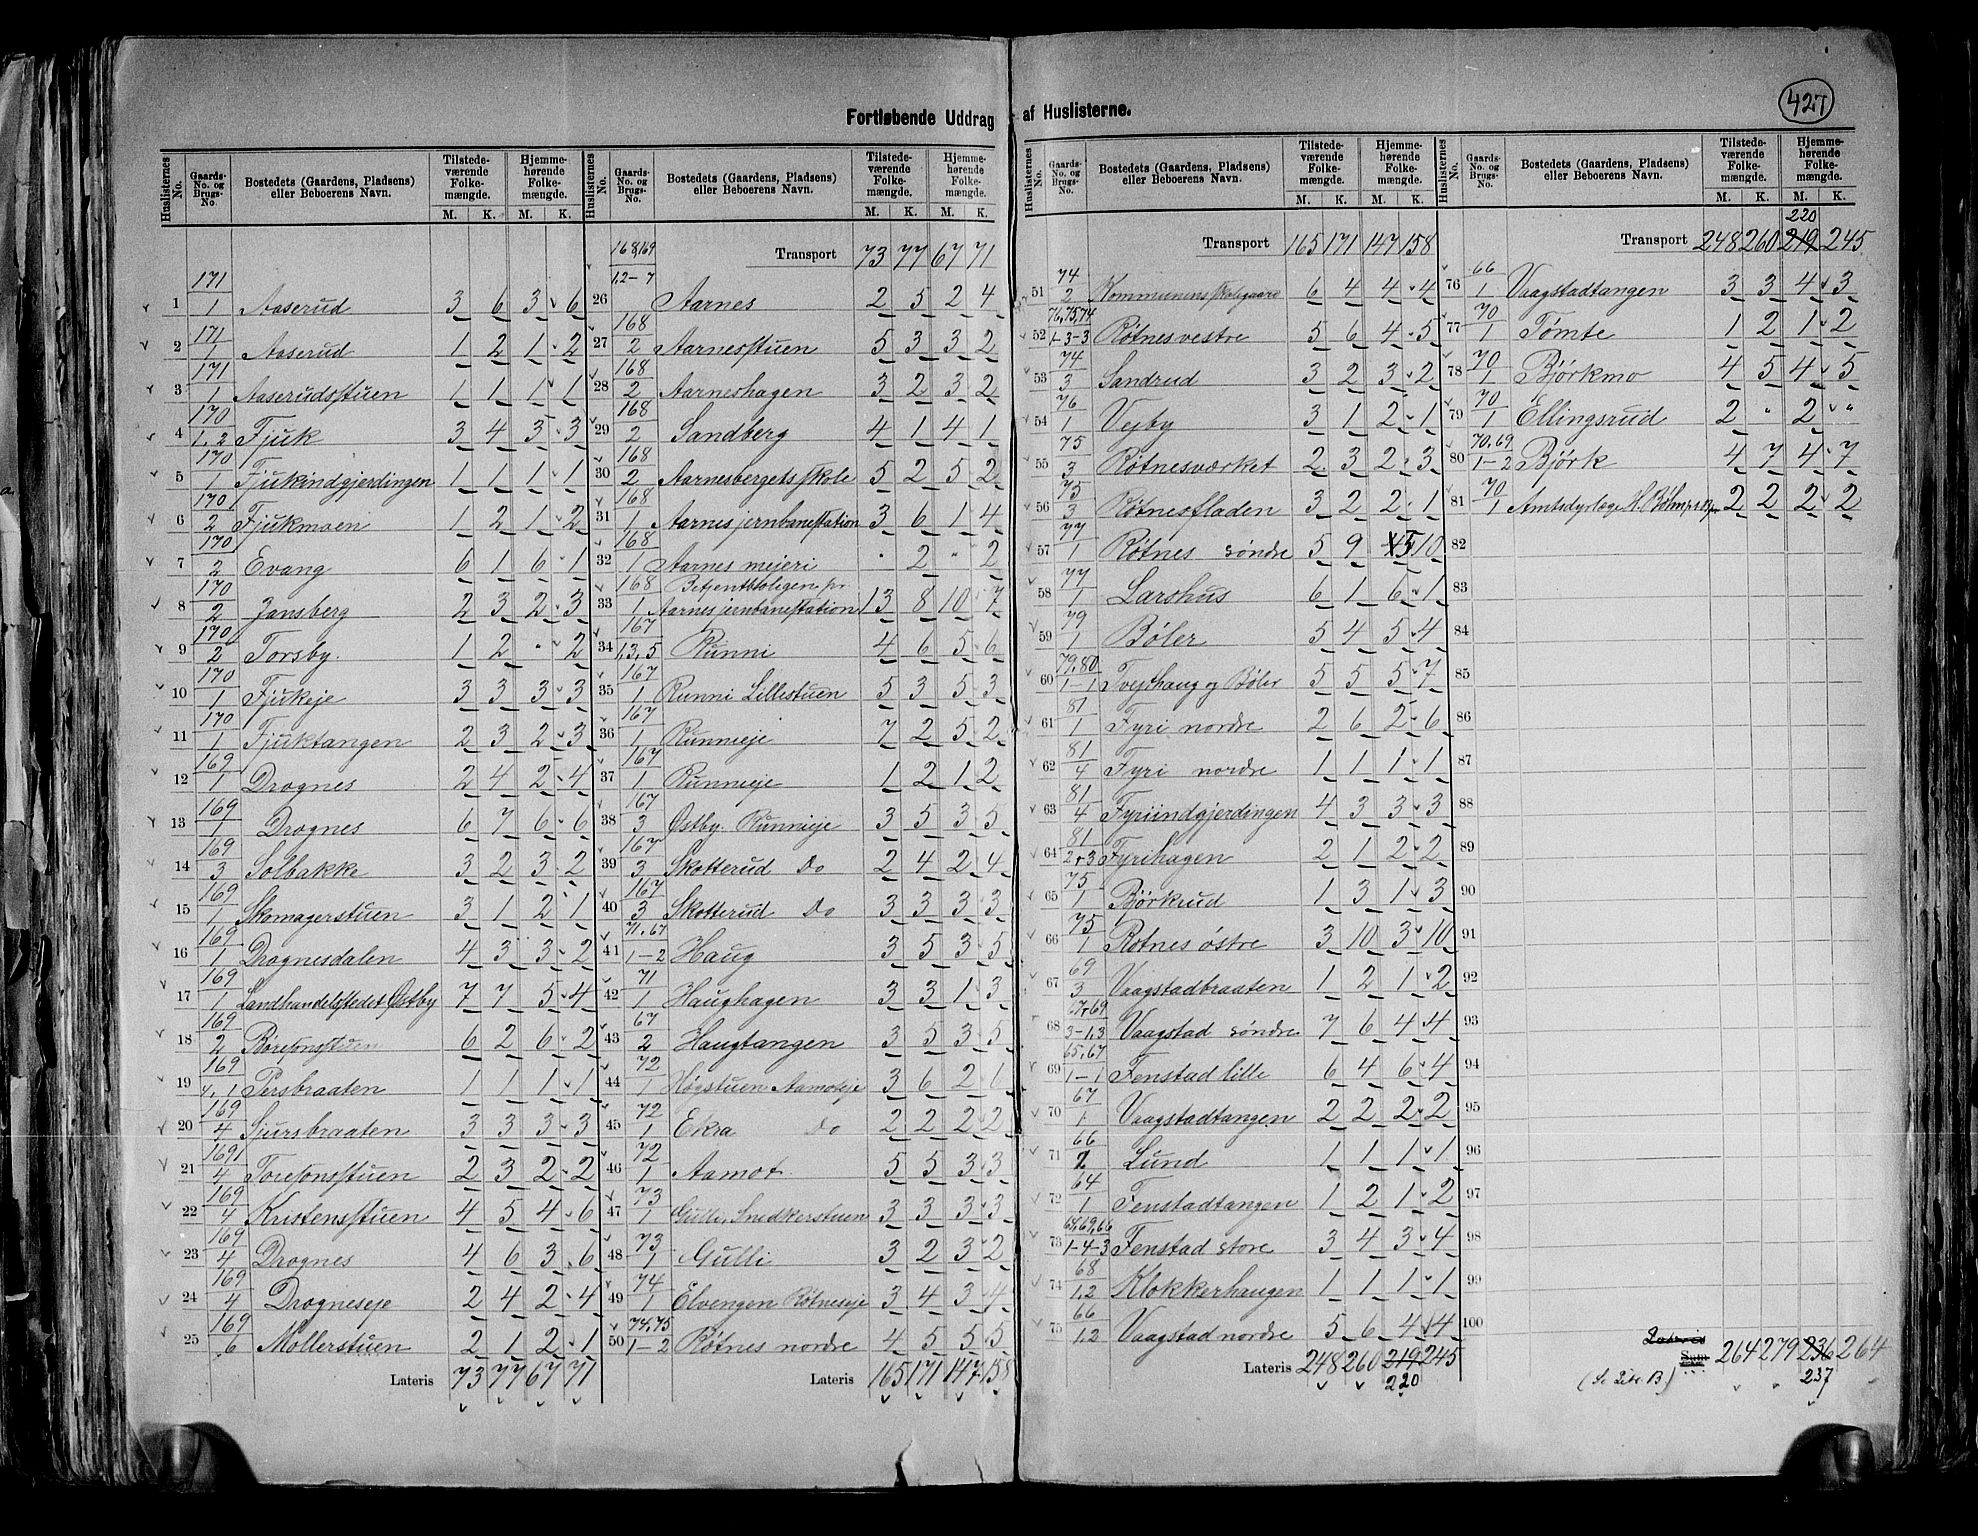 427
Fortløbende Uddrag af Huslisterne.
Huslisternes No. | Gaards-No. og Brugs-No. | Bostedets (Gaardens, Pladsens) eller Beboerens Navn. | Tilstedeværende Folkemængde. M. K. | Hjemmehørende Folkemængde. M. K.
1 | 171/1 | Aaserud | 3 | 6 | 3 | 6
2 | 171/1 | Aaserud | 1 | 2 | 1 | 2
3 | 171/1 | Aaserudsstuen | 1 | 1 | 1 | 1
4 | 170/1,2 | Fjuk | 3 | 4 | 3 | 3
5 | 170/1 | Fjukindgjerdingen | 1 | 1 | 1 | 1
6 | 170/2 | Fjukmoen | 1 | 2 | 1 | 2
7 | 170/2 | Evang | 6 | 1 | 6 | 1
8 | 170/2 | Jansberg | 2 | 3 | 2 | 3
9 | 170/2 | Torsby. | 1 | 2 | " | 2
10 | 170/1 | Fjukeje | 3 | 3 | 3 | 3
11 | 170/1 | Fjuktangen | 2 | 3 | 2 | 3
12 | 169/1 | Drognes | 2 | 4 | 2 | 4
13 | 169/1 | Drognes | 6 | 7 | 6 | 6
14 | 169/3 | Solbakke | 3 | 2 | 3 | 2
15 | 169/1 | Skomagerstuen | 3 | 1 | 2 | 1
16 | 169/1 | Drognesdalen | 4 | 3 | 3 | 2
17 | 169/1 | Landhandelsstedet Østby | 7 | 7 | 5 | 4
18 | 169/2 | Børesonsstuen | 6 | 2 | 6 | 2
19 | 169/4,1 | Persbraaten | 1 | 1 | 1 | 1
20 | 169/4 | Sjursbraaten | 3 | 3 | 3 | 3
21 | 169/4 | Toresonsstuen | 2 | 3 | 2 | 2
22 | 169/4 | Kristensstuen | 4 | 5 | 4 | 6
23 | 169/4 | Drognes | 4 | 6 | 3 | 6
24 | 169/4 | Drogneseje | 2 | 4 | 2 | 4
25 | 169/6 | Møllerstuen | 2 | 1 | 2 | 1
Lateris | 73 | 77 | 67 | 71
Huslisternes No. | Gaards-No. og Brugs-No. | Bostedets (Gaardens, Pladsens) eller Beboerens Navn. | Tilstedeværende Folkemængde. M. K. | Hjemmehørende Folkemængde. M. K.
Transport | 73 | 77 | 67 | 71
26 | 168,169/1,2-7 | Aarnes | 2 | 5 | 2 | 4
27 | 168/2 | Aarnesstuen | 5 | 3 | 3 | 2
28 | 168/2 | Aarneshagen | 3 | 2 | 3 | 2
29 | 168/2 | Sandberg | 4 | 1 | 4 | 1
30 | 168/2 | Aarnesbergets skole | 5 | 2 | 5 | 2
31 | 168/1 | Aarnes jernbanestation | 3 | 6 | 1 | 4
32 | 168/1 | Aarnes mejeri | " | 2 | " | 2
33 | 168/1 | Betjentboligen pr Aarnes jernbanestation | 13 | 8 | 10 | 7
34 | 167/1,3,5 | Runni | 4 | 6 | 5 | 6
35 | 167/1 | Runni Lillestuen | 5 | 3 | 5 | 3
36 | 167/1 | Runnieje | 7 | 2 | 5 | 2
37 | 167/1 | Runnieje | 1 | 2 | 1 | 2
38 | 167/3 | Østby. Runnieje | 3 | 5 | 3 | 5
39 | 167/3 | Skotterud Do | 2 | 4 | 2 | 4
40 | 167/3 | Skotterud Do | 3 | 3 | 3 | 3
41 | 71,67/1-2 | Haug | 3 | 5 | 3 | 5
42 | 71/1 | Haughagen | 3 | 3 | 1 | 3
43 | 67/2 | Haugtangen | 3 | 5 | 3 | 5
44 | 72/1 | Høgstuen Aamoteje | 3 | 6 | 2 | 6
45 | 72/1 | Ekra Do | 2 | 2 | 2 | 2
46 | 72/1 | Aamot | 5 | 5 | 3 | 3
47 | 73/1 | Gulli, Snedkerstuen | 3 | 3 | 3 | 3
48 | 73/1 | Gulli | 3 | 2 | 3 | 2
49 | 74/1 | Elvengen Rötneseje | 3 | 4 | 3 | 4
50 | 74,75/1-2 | Rötnes nordre | 4 | 5 | 5 | 5
Lateris | 165 | 171 | 147 | 158
Huslisternes No. | Gaards-No. og Brugs-No. | Bostedets (Gaardens, Pladsens) eller Beboerens Navn. | Tilstedeværende Folkemængde. M. K. | Hjemmehørende Folkemængde. M. K.
Transport | 165 | 171 | 147 | 158
51 | 74/2 | Kommunens skolegaard | 6 | 4 | 4 | 4
52 | 76,75,74/1-3-3 | Rötnes vestre | 5 | 6 | 4 | 5
53 | 74/3 | Sandrud | 3 | 2 | 3 | 2
54 | 76/1 | Vejby | 3 | 1 | 2 | 1
55 | 75/3 | Rötnesværket | 2 | 3 | 2 | 3
56 | 75/3 | Rötnesfladen | 3 | 2 | 2 | 1
57 | 77/1 | Rötnes söndre | 5 | 9 | 5 | 10
58 | 77/1 | Larshus | 6 | 1 | 6 | 1
59 | 79/1 | Bøler | 5 | 4 | 5 | 4
60 | 79,80/1-1 | Tvejthaug og Bøler | 5 | 5 | 5 | 7
61 | 81/1 | Fyri nordre | 2 | 6 | 2 | 6
62 | 81/4 | Fyri nordre | 1 | 1 | 1 | 1
63 | 81/4 | Fyriindgjerdingen | 4 | 3 | 3 | 3
64 | 81/2+3 | Fyrihagen | 2 | 1 | 2 | 2
65 | 75/1 | Börkrud | 1 | 3 | 1 | 3
66 | 75/1 | Rötnes östre | 3 | 10 | 3 | 10
67 | 69/3 | Vaagstadbraaten | 1 | 2 | 1 | 2
68 | 67,69/3-1,3 | Vaagstad söndre | 7 | 6 | 4 | 4
69 | 65,67/1-1 | Fenstad lille | 6 | 4 | 6 | 4
70 | 67/1 | Vaagstadtangen | 2 | 2 | 2 | 2
71 | 66/2 | Lund | 1 | 1 | 1 | 1
72 | 64/1 | Fenstadtangen | 1 | 2 | 1 | 2
73 | 64,69,66/1-4-3 | Fenstad store | 3 | 4 | 3 | 4
74 | 68/1,2 | Klokkerhaugen | 1 | 1 | 1 | 1
75 | 66/1,2 | Vaagstad nordre | 5 | 6 | 4 | 4
Lateris | 248 | 260 | 219 | 245
220
Huslisternes No. | Gaards-No. og Brugs-No. | Bostedets (Gaardens, Pladsens) eller Beboerens Navn. | Tilstedeværende Folkemængde. M. K. | Hjemmehørende Folkemængde. M. K.
220
Transport | 248 | 260 | 219 | 245
76 | 66/1 | Vaagstadtangen | 3 | 3 | 4 | 3
77 | 70/1 | Tømte | 1 | 2 | 1 | 2
78 | 70/1 | Björkmo | 4 | 5 | 4 | 5
79 | 70/1 | Ellingsrud | 2 | " | 2 | "
80 | 70,69/1-2 | Björk | 4 | 7 | 4 | 7
81 | 70/1 | Amtsdyrlæge H. | 2 | 2 | 2 | 2
82
83
84
85
86
87
88
89
90
91
92
93
94
95
96
97
98
99
100
Lateris
Sum | 264 | 279 | 236 | 264
(Se Litr. B.) 237